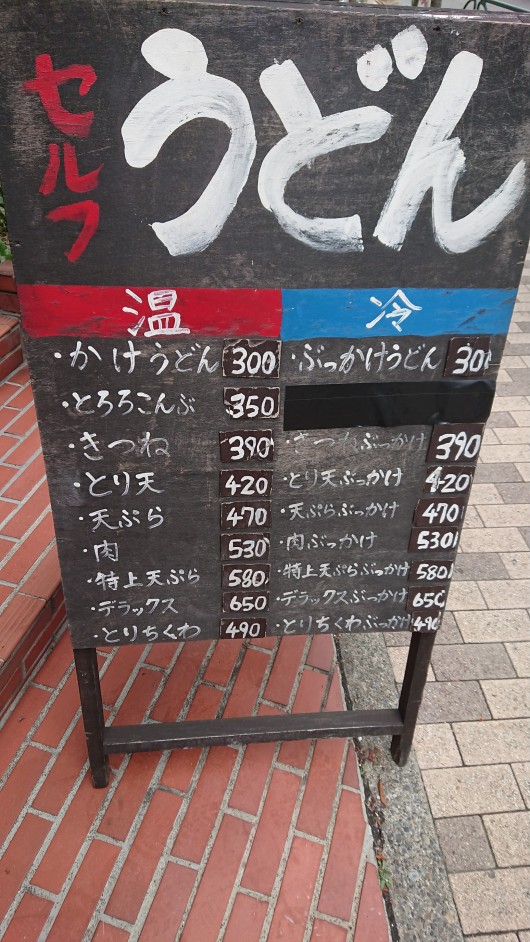 セルフ
うどん
温
・かけうどん 300
・とろろこんぶ 350
・きつね 390
・とり天 420
・天ぷら 470
・肉 530
・特上天ぷら 580
・デラックス 650
・とりちくわ 490
冷
・ぶっかけうどん 300
・きつねぶっかけ 390
・とり天ぶっかけ 420
・天ぷらぶっかけ 470
・肉ぶっかけ 530
・特上天ぷらぶっかけ 580
・デラックスぶっかけ 650
・とりちくわぶっかけ 490